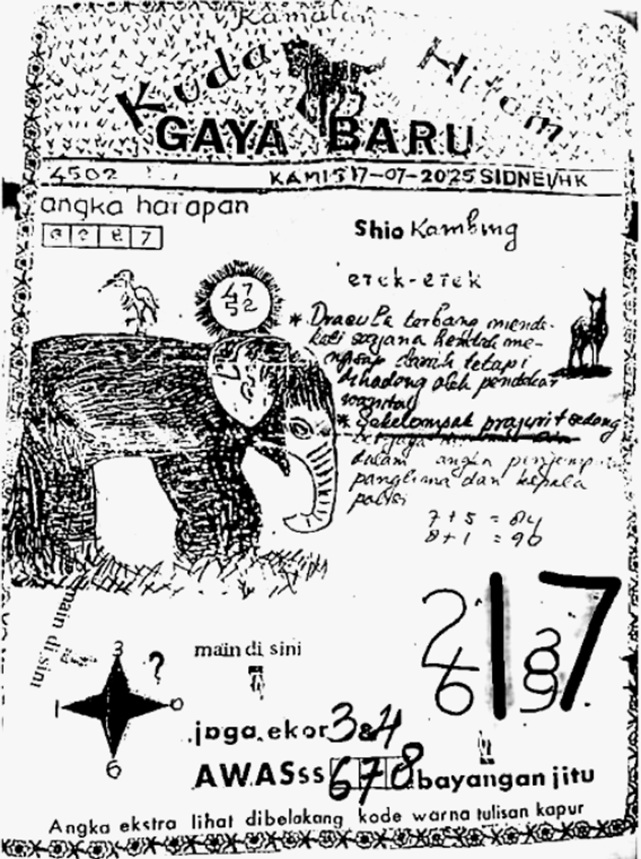 Kamalin
Kuda Hitam
GAYA BARU
4502
KAMIS 17-07-2025 SIDNEI/HK
angka harapan
Shio Kambing
erek-erek
47
52
* Dracula terbang mende-
kati sarjana hendak me-
darah tetapi
dihadang oleh pendekar
wanita
* Sekelompok prajurit sedang
dalam angin
panglima dan kepala
polisi
7+5 = 84
8+1 = 90
main di sini
3
?
1
0
6
main di sini
2 1 7
4 6
3 8 9
jaga ekor 3 & 4
AWASss 678 bayangan jitu
Angka ekstra lihat dibelakang kode warna tulisan kapur